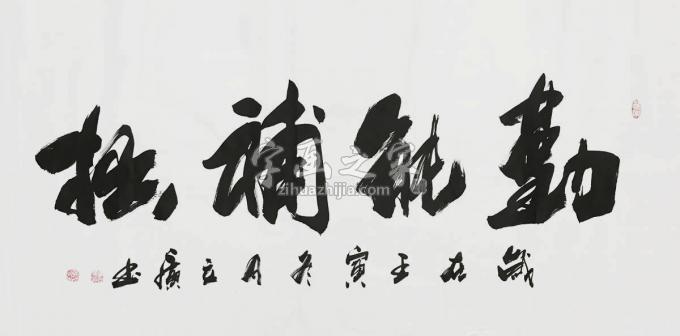 勤能補拙
歲在壬寅冬月立廣書
字画之家
zihuazhijia.com